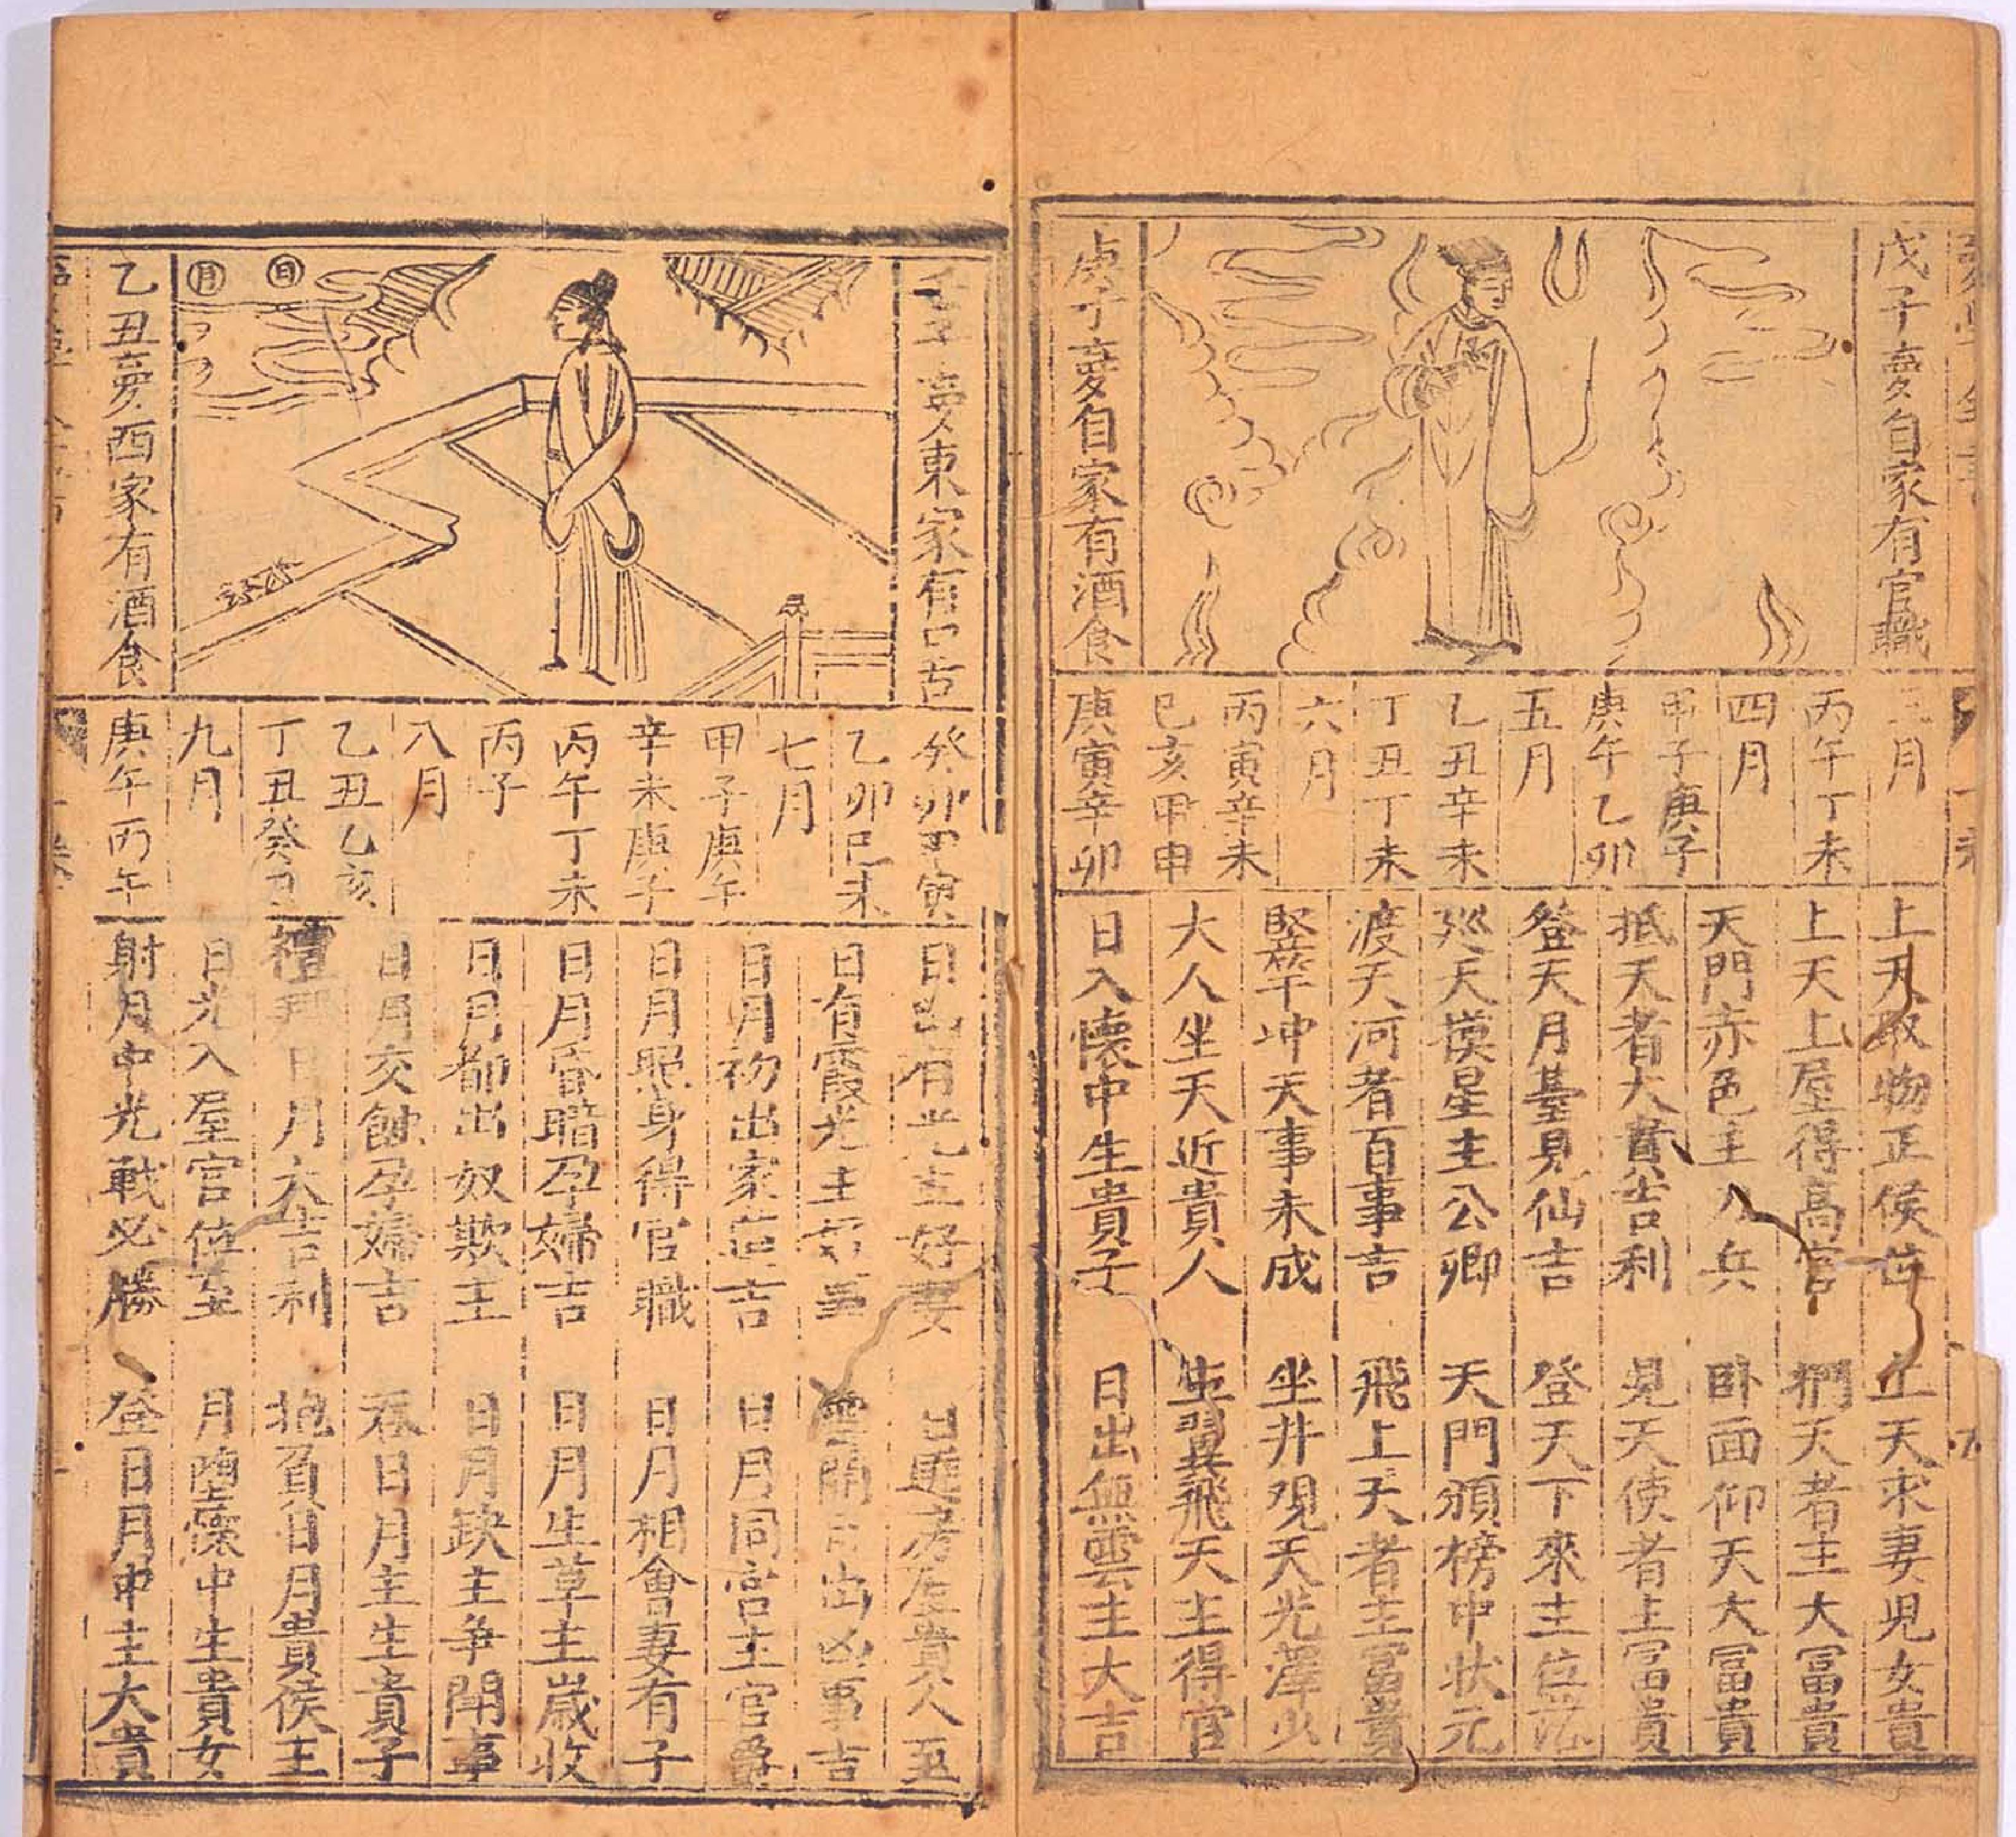 戊子夣自家有官職
庚子夣自家有酒食
三月
丙午丁未
四月
甲子庚子
庚午乙卯
五月
乙丑辛未
丁丑丁未
六月
丙寅辛未
巳亥甲申
庚寅辛卯
上天取物正侯位
上天求妻児女貴
上天上屋得高官
捫天者主大冨貴
天門赤色主八兵
卧面仰天大冨貴
抵天者大貴吉利
見天使者主冨貴
登天月䑓見仙吉
登天下來主位
廵天摸星主公卿
天門頒榜中狀元
渡天河者百事吉
飛上天者主冨貴
竪竿冲天事未成
坐井观天光澤少
大人坐天近貴人
生翼飛天主得官
日入懷中生貴子
日出無雲主大吉
夣東家有口舌
月 日
乙丑夣西家有酒食
癸卯甲寅
乙卯巳未
七月
甲子庚午
辛未庚子
丙午丁未
丙子
八月
乙丑乙亥
丁丑癸丑
九月
庚午丙午
日出有光主好妻
日進房屋貴人至
日有霞光主好事
雲開日出凶事吉
日月初出家道吉
日月同宫主官爵
日月照身得官職
日月相會妻有子
日月昏暗孕婦吉
日月生草主崴收
日月都出奴欺主
日月缺主争閗事
日月交蝕孕婦吉
吞日月主生貴子
禮拜日月大吉利
抱負日月貴侯王
日光入屋官位至
月墮懷中生貴女
射月中光戰必勝
登日月中主大貴